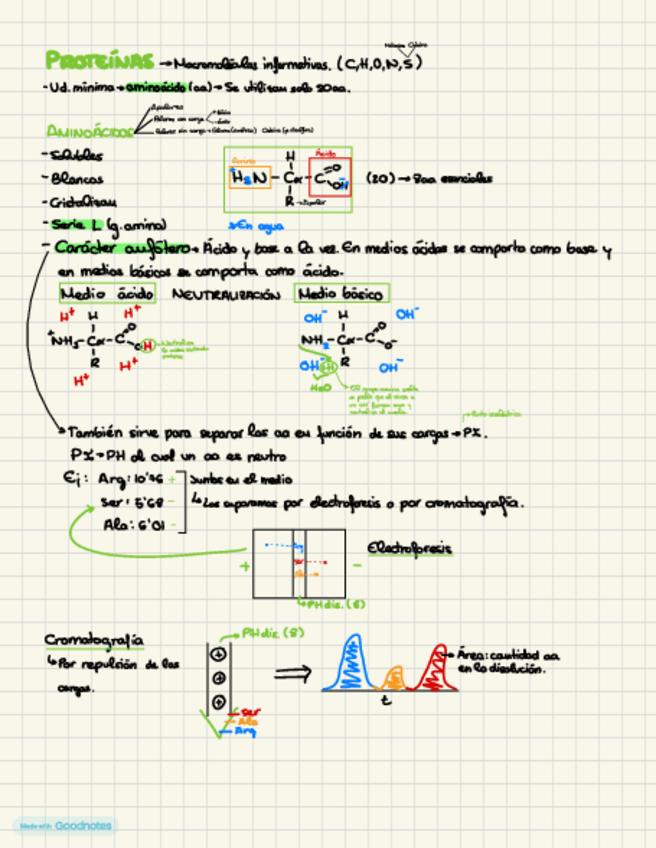 PROTEÍNAS → Macromoléculas informativas. (C,H,O,N,S)
- Ud. mínima → aminoácido (aa) → Se utilizan solo 20aa.
AMINOÁCIDOS
Apolares
Polares sin carga
- Solubles
- Blancos
- Cristalizan
- Serie L (g.amino)
Amino
Ácido
H₃N - Cα - C
H
O
OH
R → Dipolar
En agua
(20) → 8aa esenciales
- Carácter anfótero → Ácido y base a la vez. En medios ácidos se comporta como base y
en medios básicos se comporta como ácido.
Medio ácido NEUTRALIZACIÓN Medio básico
H⁺ H H⁺
⁺NH₃ - Cα - C O OH
H⁺ R H⁺
OH⁻ H OH⁻
NH₂ - Cα - C O O⁻
OH⁻ R OH⁻
H₂O
→ También sirve para separar los aa en función de sus cargas → PI.
→ Punto isoeléctrico
PI → PH al cual un aa es neutro
Ej: Arg: 10'76 + Juntos en el medio
Ser: 5'68 - ↳ Los separamos por electroforesis o por cromatografía.
Ala: 6'01 -
Electroforesis
+ -
↳ PH dis. (8)
Cromatografía
↳ Por repulsión de las
cargas.
→ PH dis. (8)
+
+
+
Ser
Ala
Arg
t
→ Área: cantidad aa
en la disolución.
Made with Goodnotes